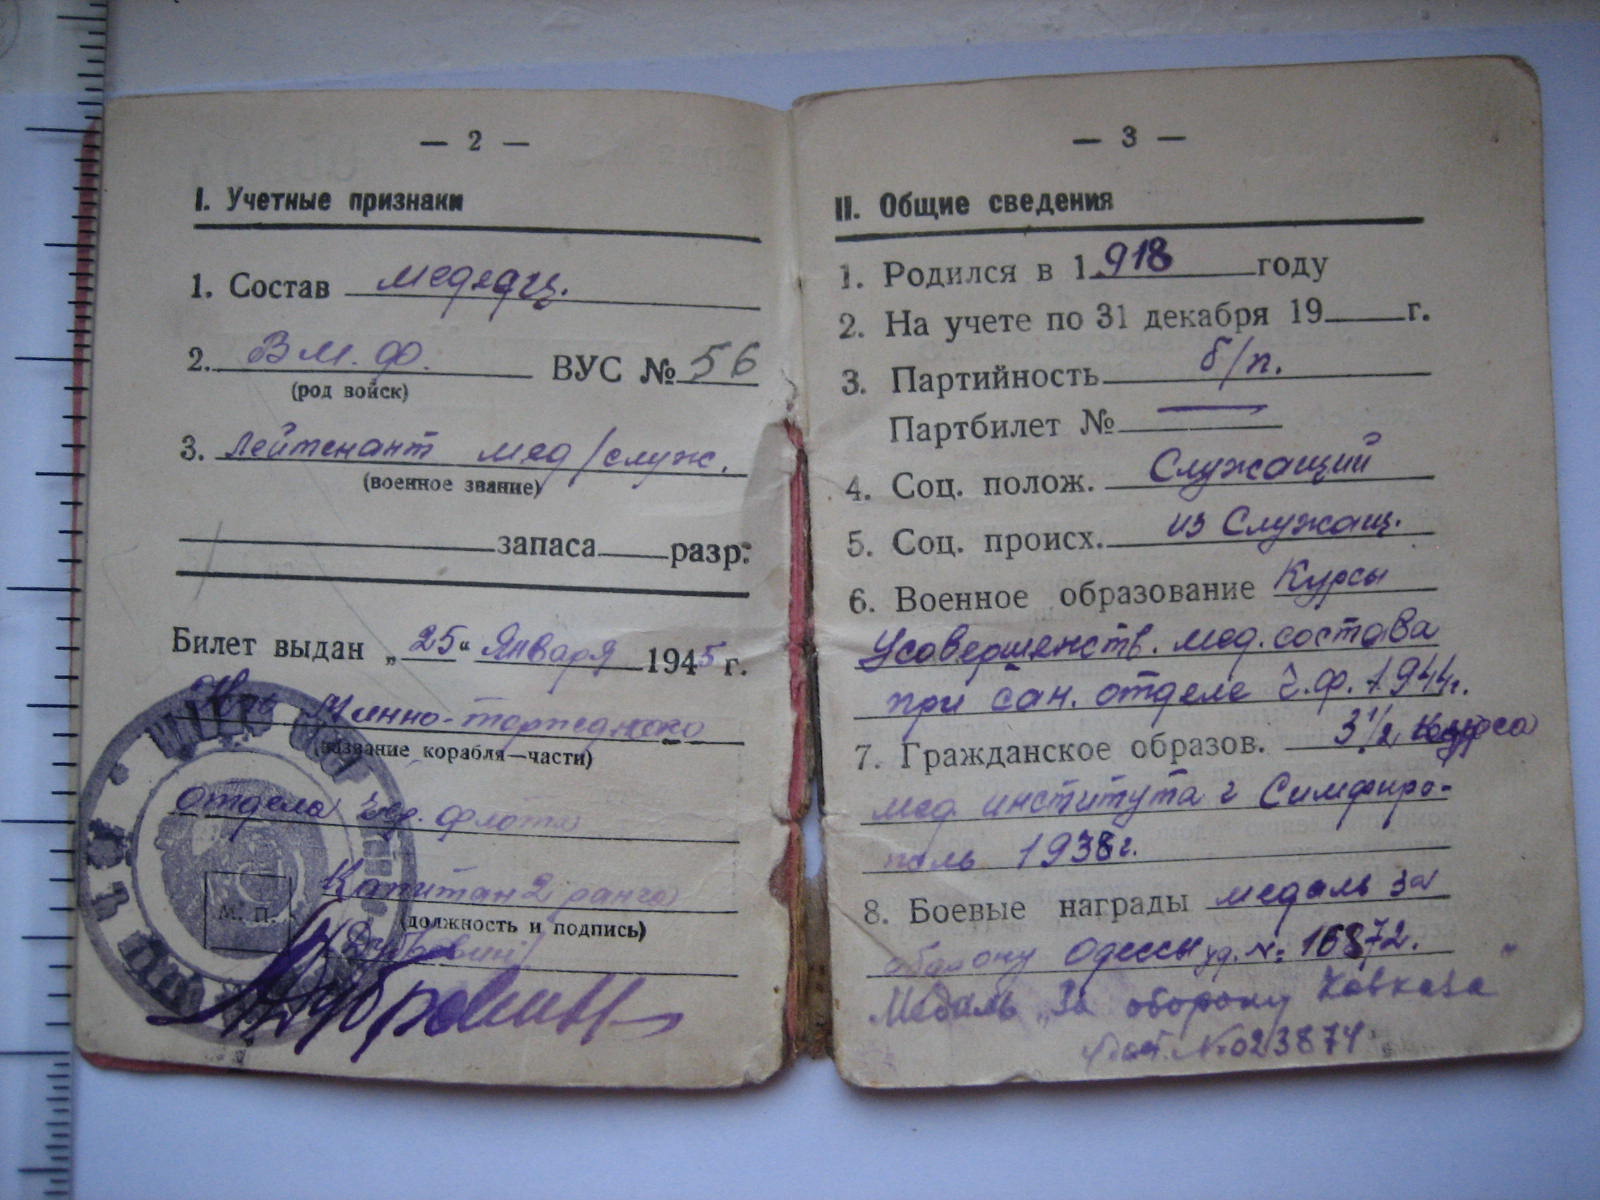 — 2 —
I. Учетные признаки
1. Состав медицц.
2. В.М.Ф. ВУС № 56
(род войск)
3. Лейтенант мед/служ.
(военное звание)
запаса разр.
Билет выдан „25“ Января 1945 г.
Минно-торпедного
(название корабля—части)
отдела флота
Капитан 2 ранга
(должность и подпись)
М. П.
/Дубровин/
— 3 —
II. Общие сведения
1. Родился в 1918 году
2. На учете по 31 декабря 19 г.
3. Партийность б/п.
Партбилет № —
4. Соц. полож. Служащий
5. Соц. происх. из Служащ.
6. Военное образование Курсы
Усовершенств. мед. состава
при сан. отделе Ч.Ф. 1944г.
7. Гражданское образов. 3 1/2 курса
мед института г Симферо-
поль 1938г.
8. Боевые награды медаль за
оборону Одессы уд. № 16872.
Медаль „За оборону Кавказа"
№ 023874